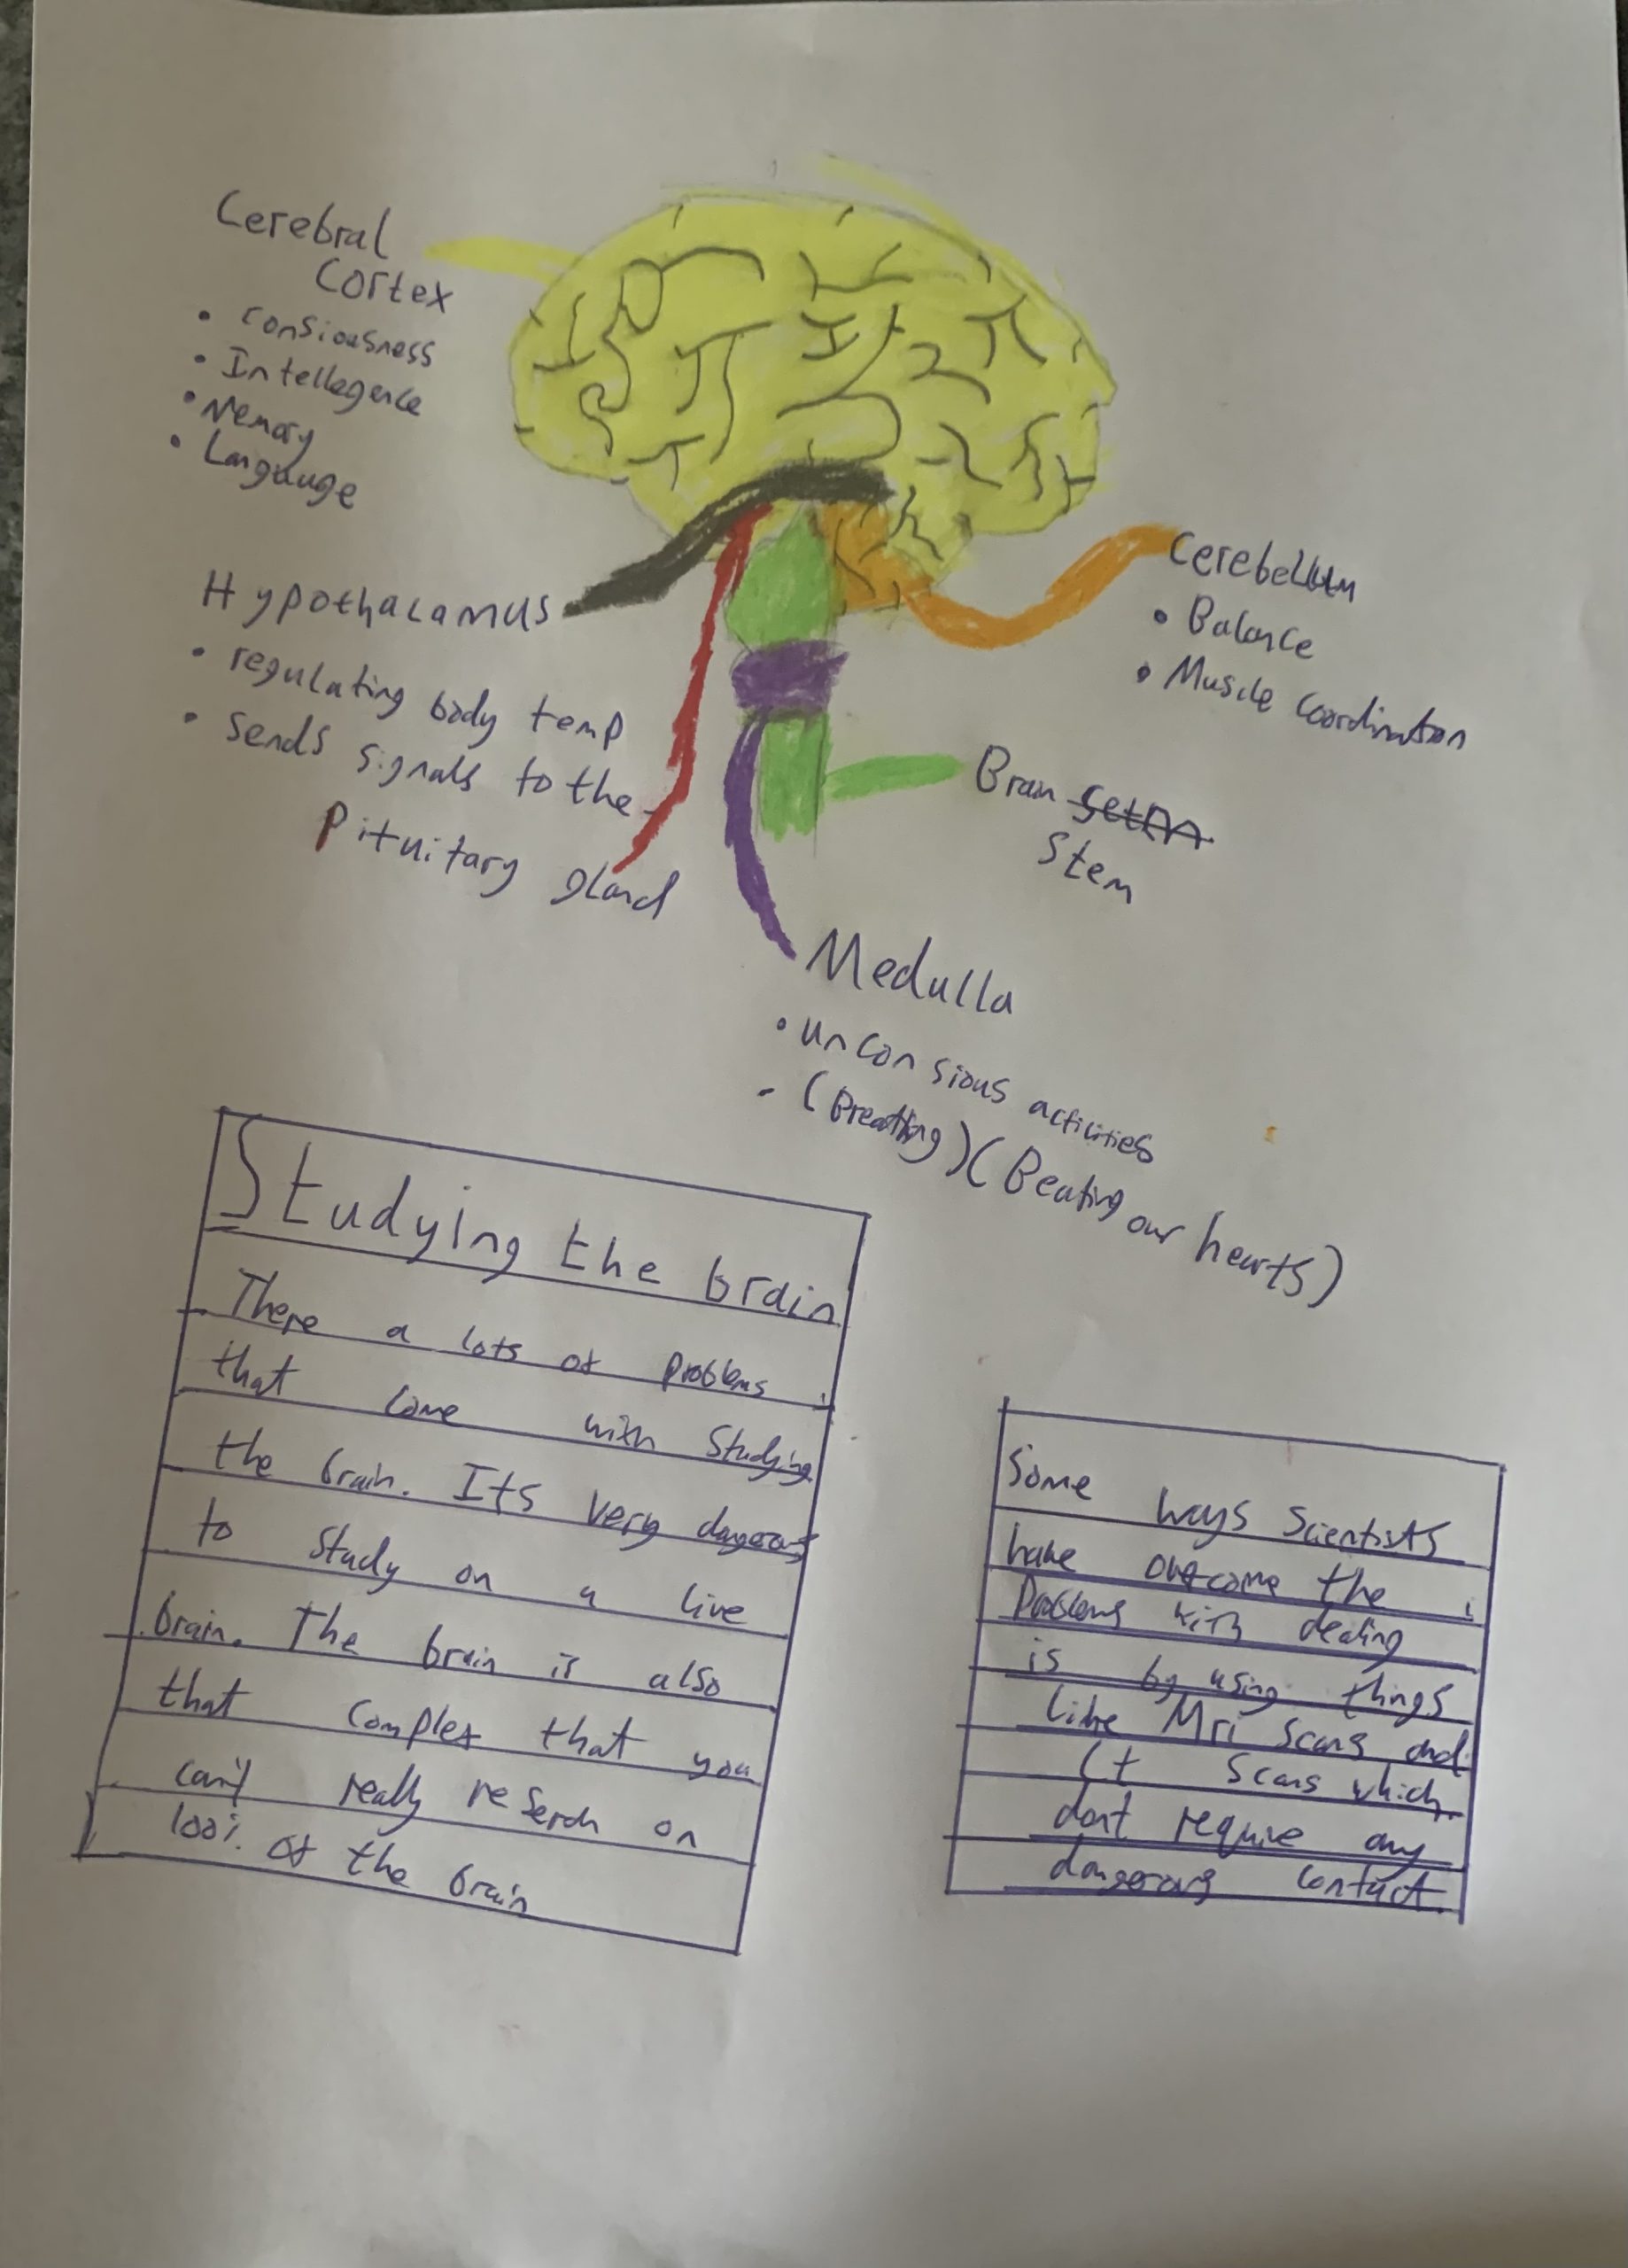 Cerebral
Cortex
• Consiousness
• Intellegence
• Memory
• Langauge
Hypothalamus
• regulating body temp
• sends signals to the
Pituitary gland
Cerebellum
• Balance
• Muscle coordination
Brain
Stem
Medulla
• unconsious activities
- (Breathing) (Beating our hearts)
Studying the brain
There a lots of problems
that come with studying
the brain. Its very dangerous
to study on a live
brain. The brain is also
that complex that you
can't really reserch on
100% of the brain
Some ways scientists
have overcome the
problems with dealing
is by using things
like Mri scans and
Ct scans which
dont require any
dangerous contact.